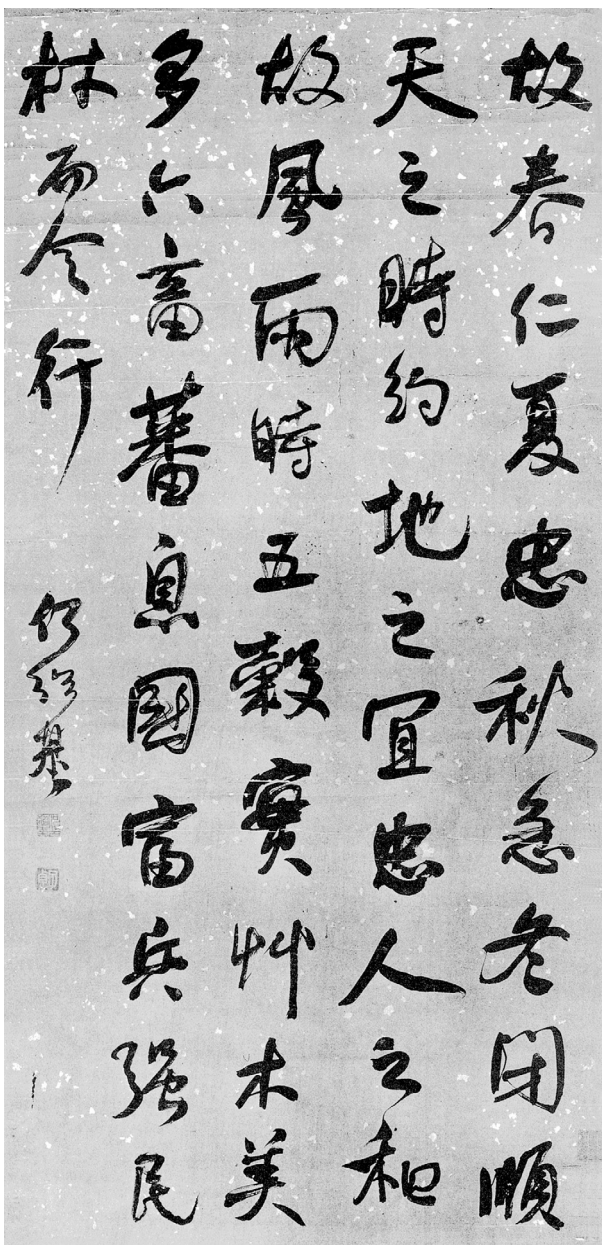 故春仁夏忠秋急冬閉順
天之時約地之宜忠人之和
故風雨時五穀實艸木美
多六畜蕃息國富兵强民
材而令行
何紹基